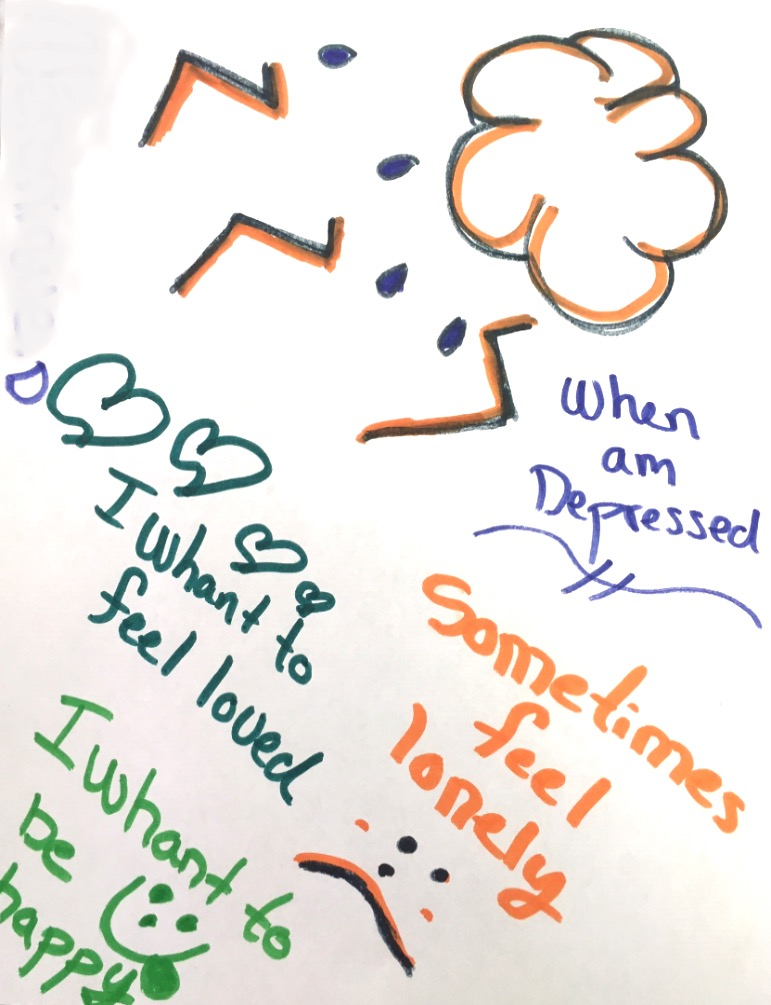 When
am
Depressed
I whant to
feel loved
Sometimes
feel
lonely
I whant to
be
happy